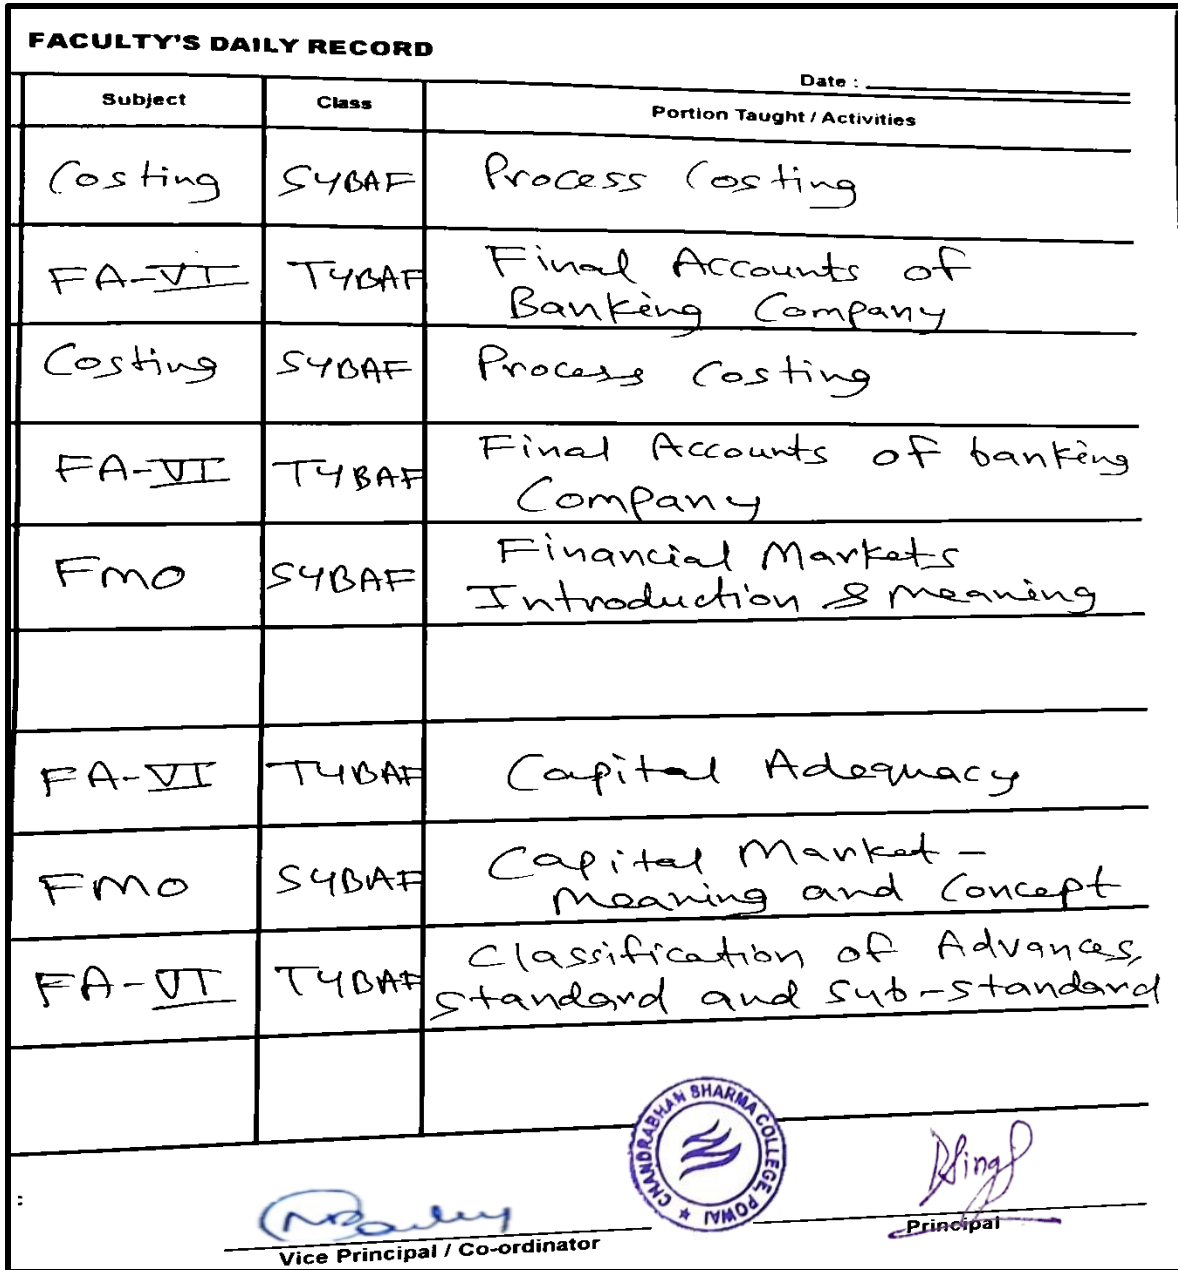 FACULTY'S DAILY RECORD
Date :
Subject Class Portion Taught / Activities
Costing SYBAF Process Costing
FA-VI TYBAF Final Accounts of
Banking Company
Costing SYBAF Process Costing
FA-VI TYBAF Final Accounts of banking
Company
FMO SYBAF Financial Markets
Introduction & Meaning
FA-VI TYBAF Capital Adequacy
FMO SYBAF Capital Market -
Meaning and Concept
FA-VI TYBAF Classification of Advances,
standard and Sub-standard
CHANDRABHAN SHARMA COLLEGE, POWAI
:
Vice Principal / Co-ordinator
Principal